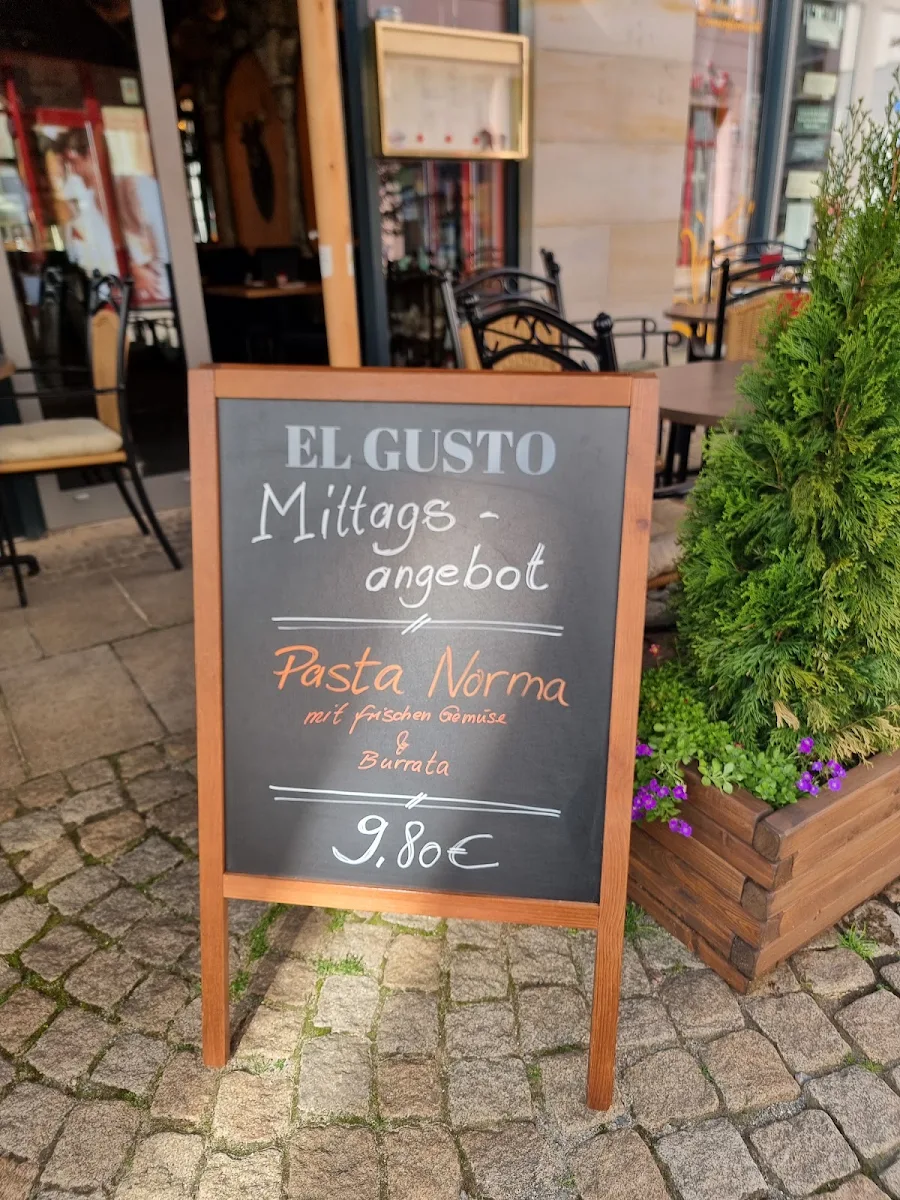 EL GUSTO
Mittags-
angebot
Pasta Norma
mit frischen Gemüse
&
Burrata
9,80€